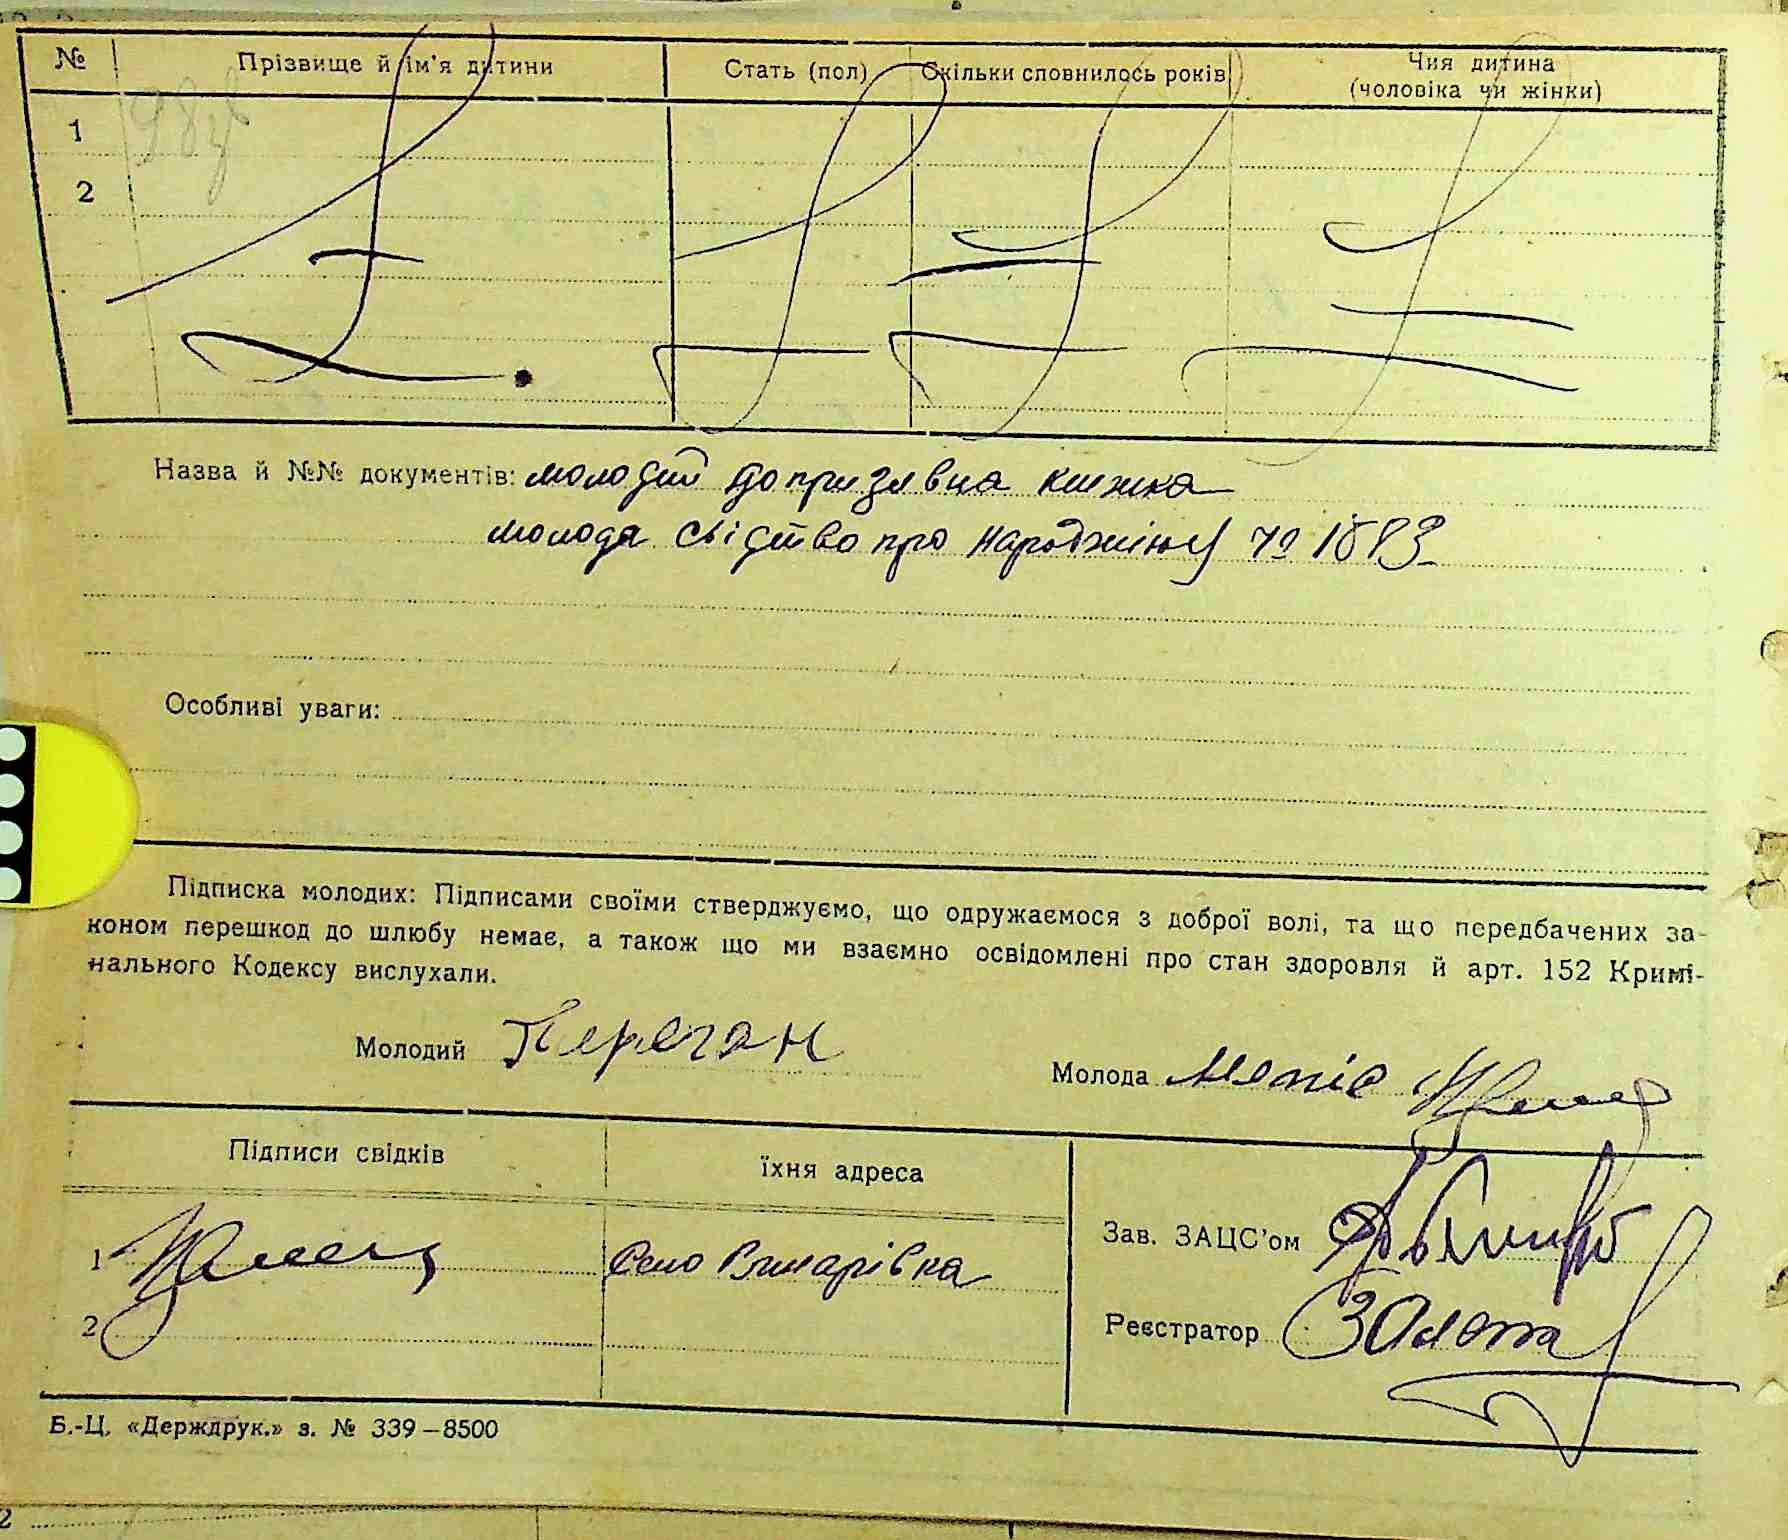 № Прізвище й ім'я дитини Стать (пол) Скільки сповнилось років Чия дитина
(чоловіка чи жінки)
1
2
Назва й №№ документів: молодий допризивна книжка
молода свідтво про народжіння № 1883
Особливі уваги:
Підписка молодих: Підписами своїми стверджуємо, що одружаємося з доброї волі, та що передбачених за-
коном перешкод до шлюбу немає, а також що ми взаємно освідомлені про стан здоровля й арт. 152 Кримі-
нального Кодексу вислухали.
Молодий
Молода
Підписи свідків їхня адреса
Зав. ЗАЦС'ом
1 село Винарівка
Реєстратор Золота
2
Б.-Ц. «Держдрук.» з. № 339–8500
2